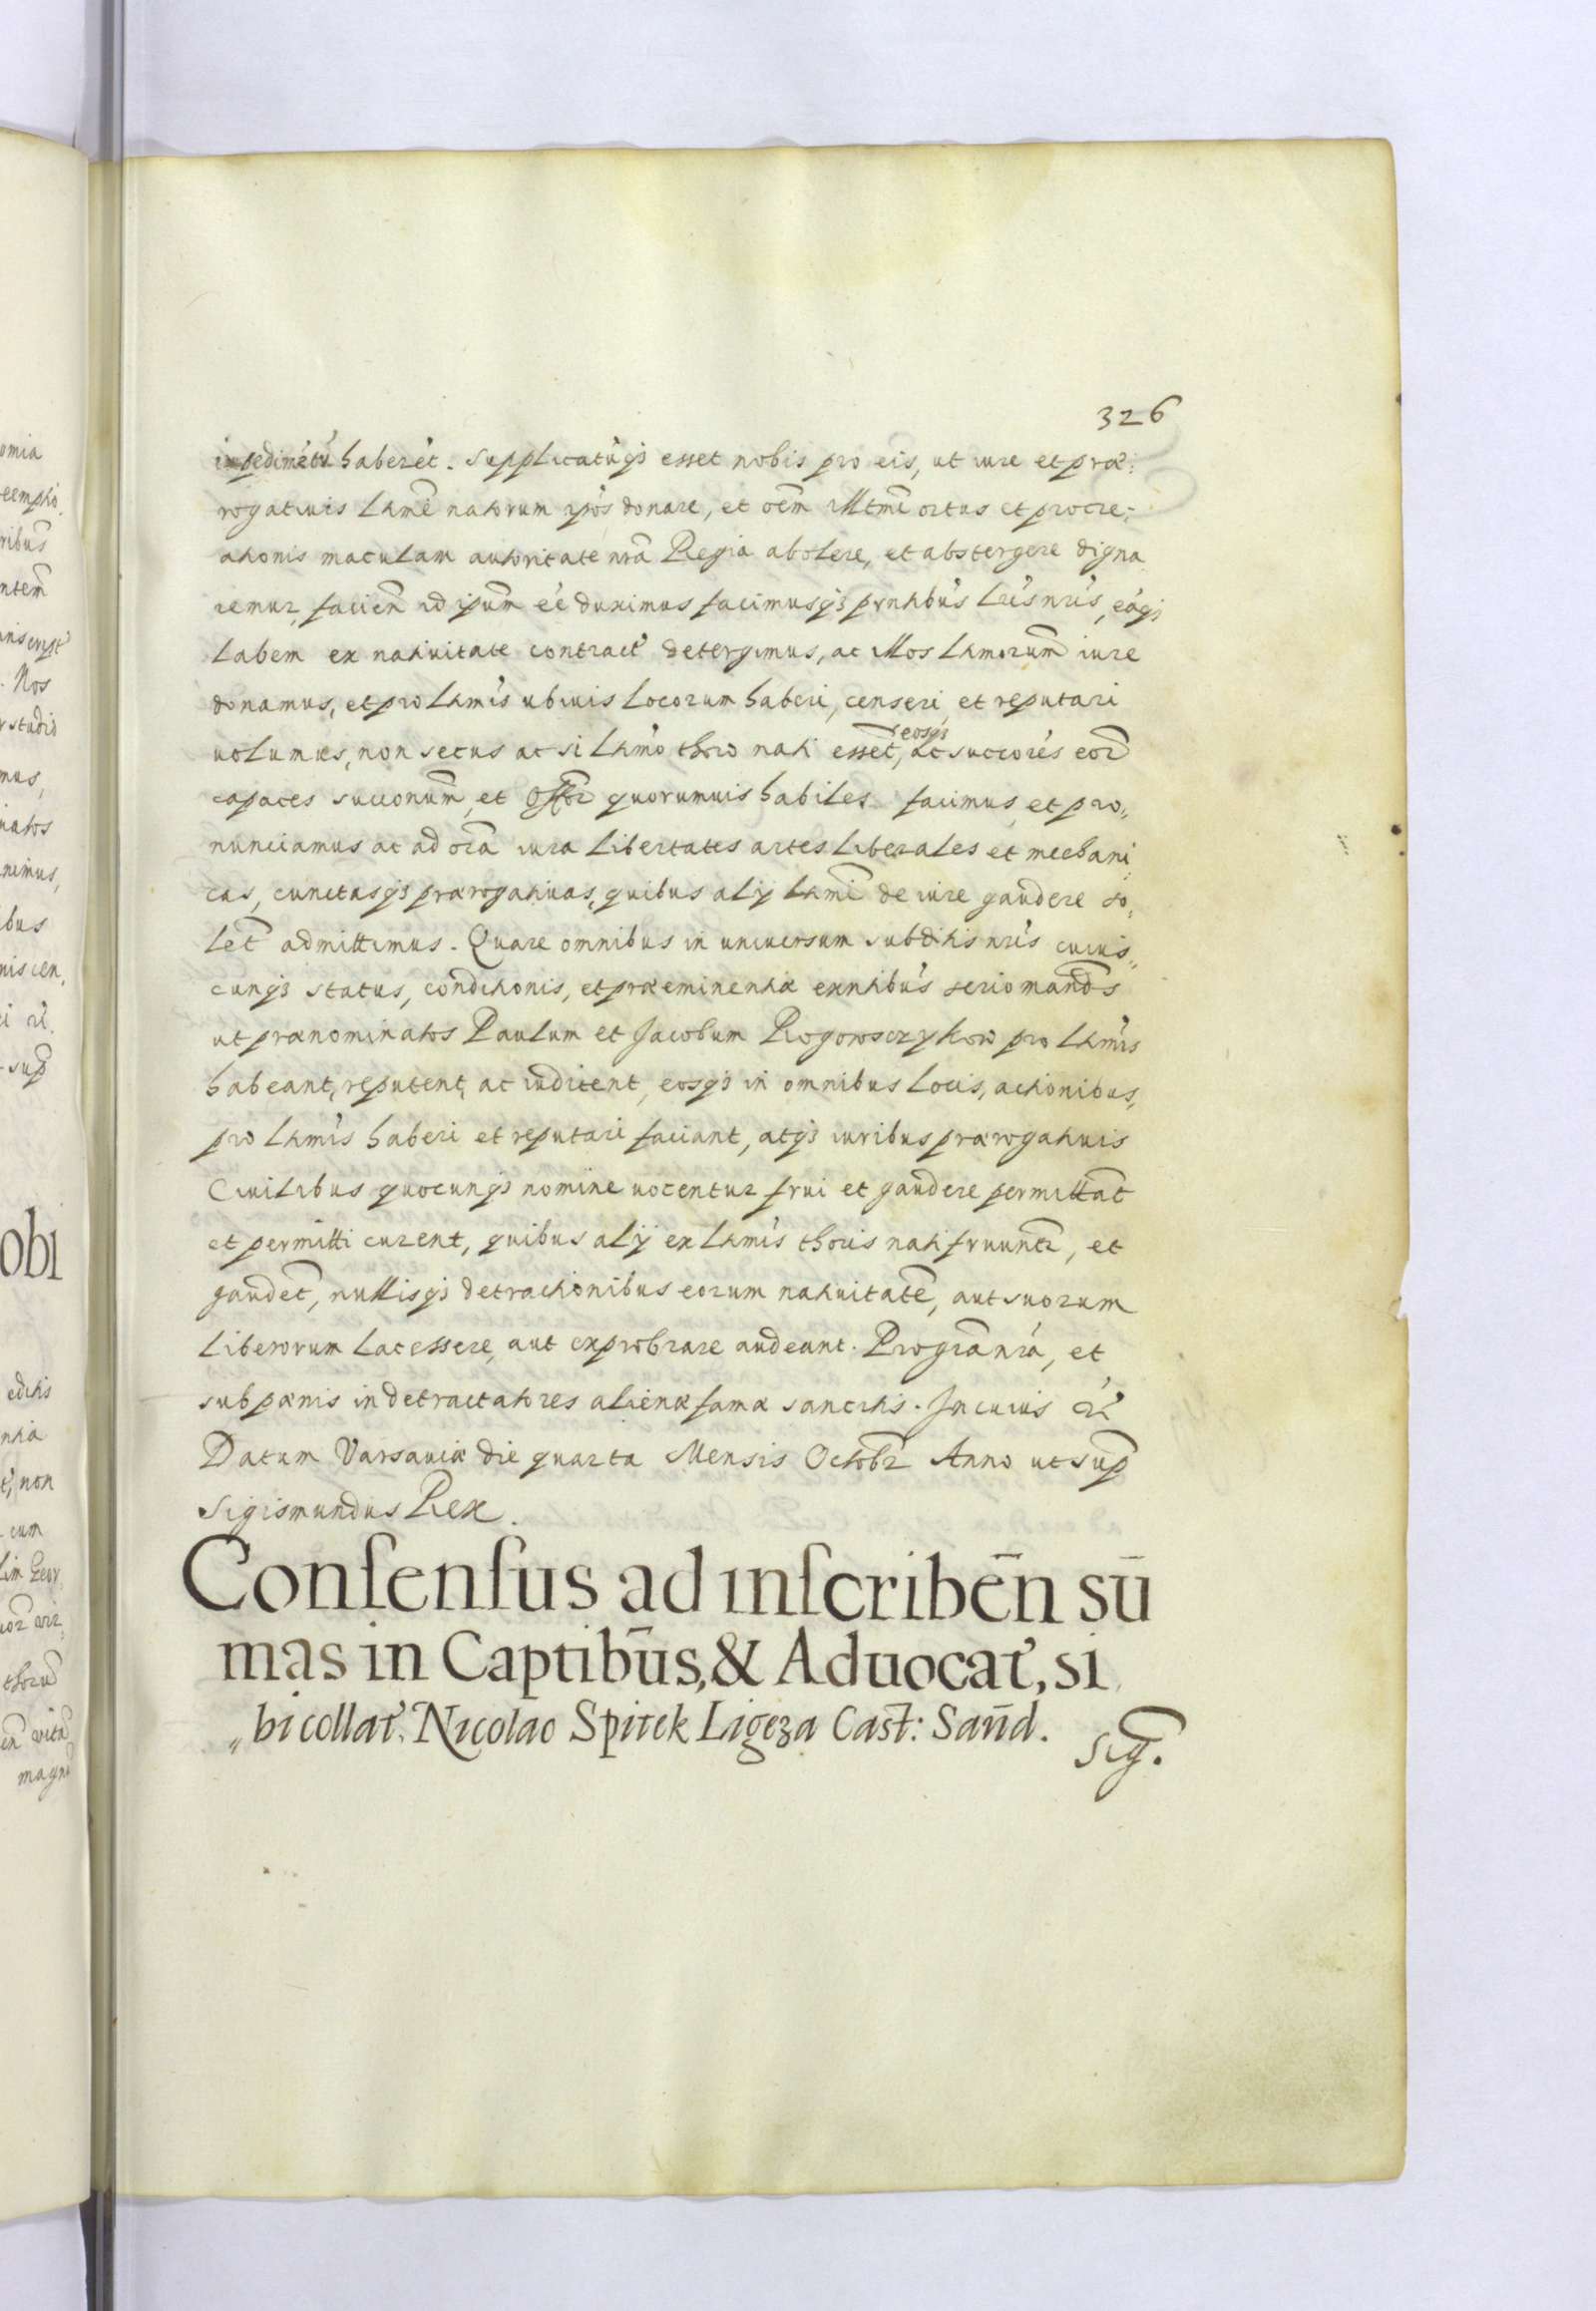 326
impedimētū haberēt. Supplicatūqз esset nobis pro eis, ut iure et præ:
rogatiuis Lhmē natorum ipōs donare, et oēm illtmē ortus et procre:
ationis maculam autoritate nrā Regia abolere, et abstergere digna
remur, faciēn id ipūm eē duximus facimusqз pntibūs Lrīs nrīs, eāqз
labem ex natiuitate contract̄ detergimus, ac illos Lhmorūm iure
donamus, et pro Lhmīs ubiuis locorum haberi, censeri, et reputari
uolumus, non secus ac si Lhmō thoro nati essēt, eosqз ac succorēs eor̄
capaces succonūm, et quorumuis habiles facimus, et pro,,
nunciamus ac ad oīa iura libertates artes liberales et mechani
cas, cunctasqз prærogatiuas, quibus alij Lhmē de iure gaudere so,
lēt admittimus. Quare omnibus in uniuersum subditis nrīs cuius,,
cunqз status, conditionis, et præeminentiæ exntibūs serio mandās
ut prænominatos Paulum et Jacobum Rogorosczykow pro Lhmīs
habeant, reputent, ac iudicent, eosqз in omnibus locis, actionibus,
pro Lhmīs haberi et reputari faciant, atqз iuribus prærogatiuis
Ciuilibus quocunqз nomine uocentur frui et gaudere permittāt
et permitti curent, quibus alij ex Lhmīs thoris nati fruuntr̄, et
gaudēt, nullisqз detractionibus eorum natiuitatē, aut suorum
liberorum lacessere, aut exprobrare audeant. Pro grā nrā, et
sub pœnis in detractatores alienæ famæ sancitis. In cuius rī
Datum Varsauiæ die quarta Mensis Octobr̄ Anno ut sup̄
Sigismundus Rex.
Conſenſus ad inſcribēn sū
mas in Captibūs, & Aduocat̄, si
,, bi collat̄. Nicolao Spitek Ligęza Cast̄: Sañd.
Sig̅.